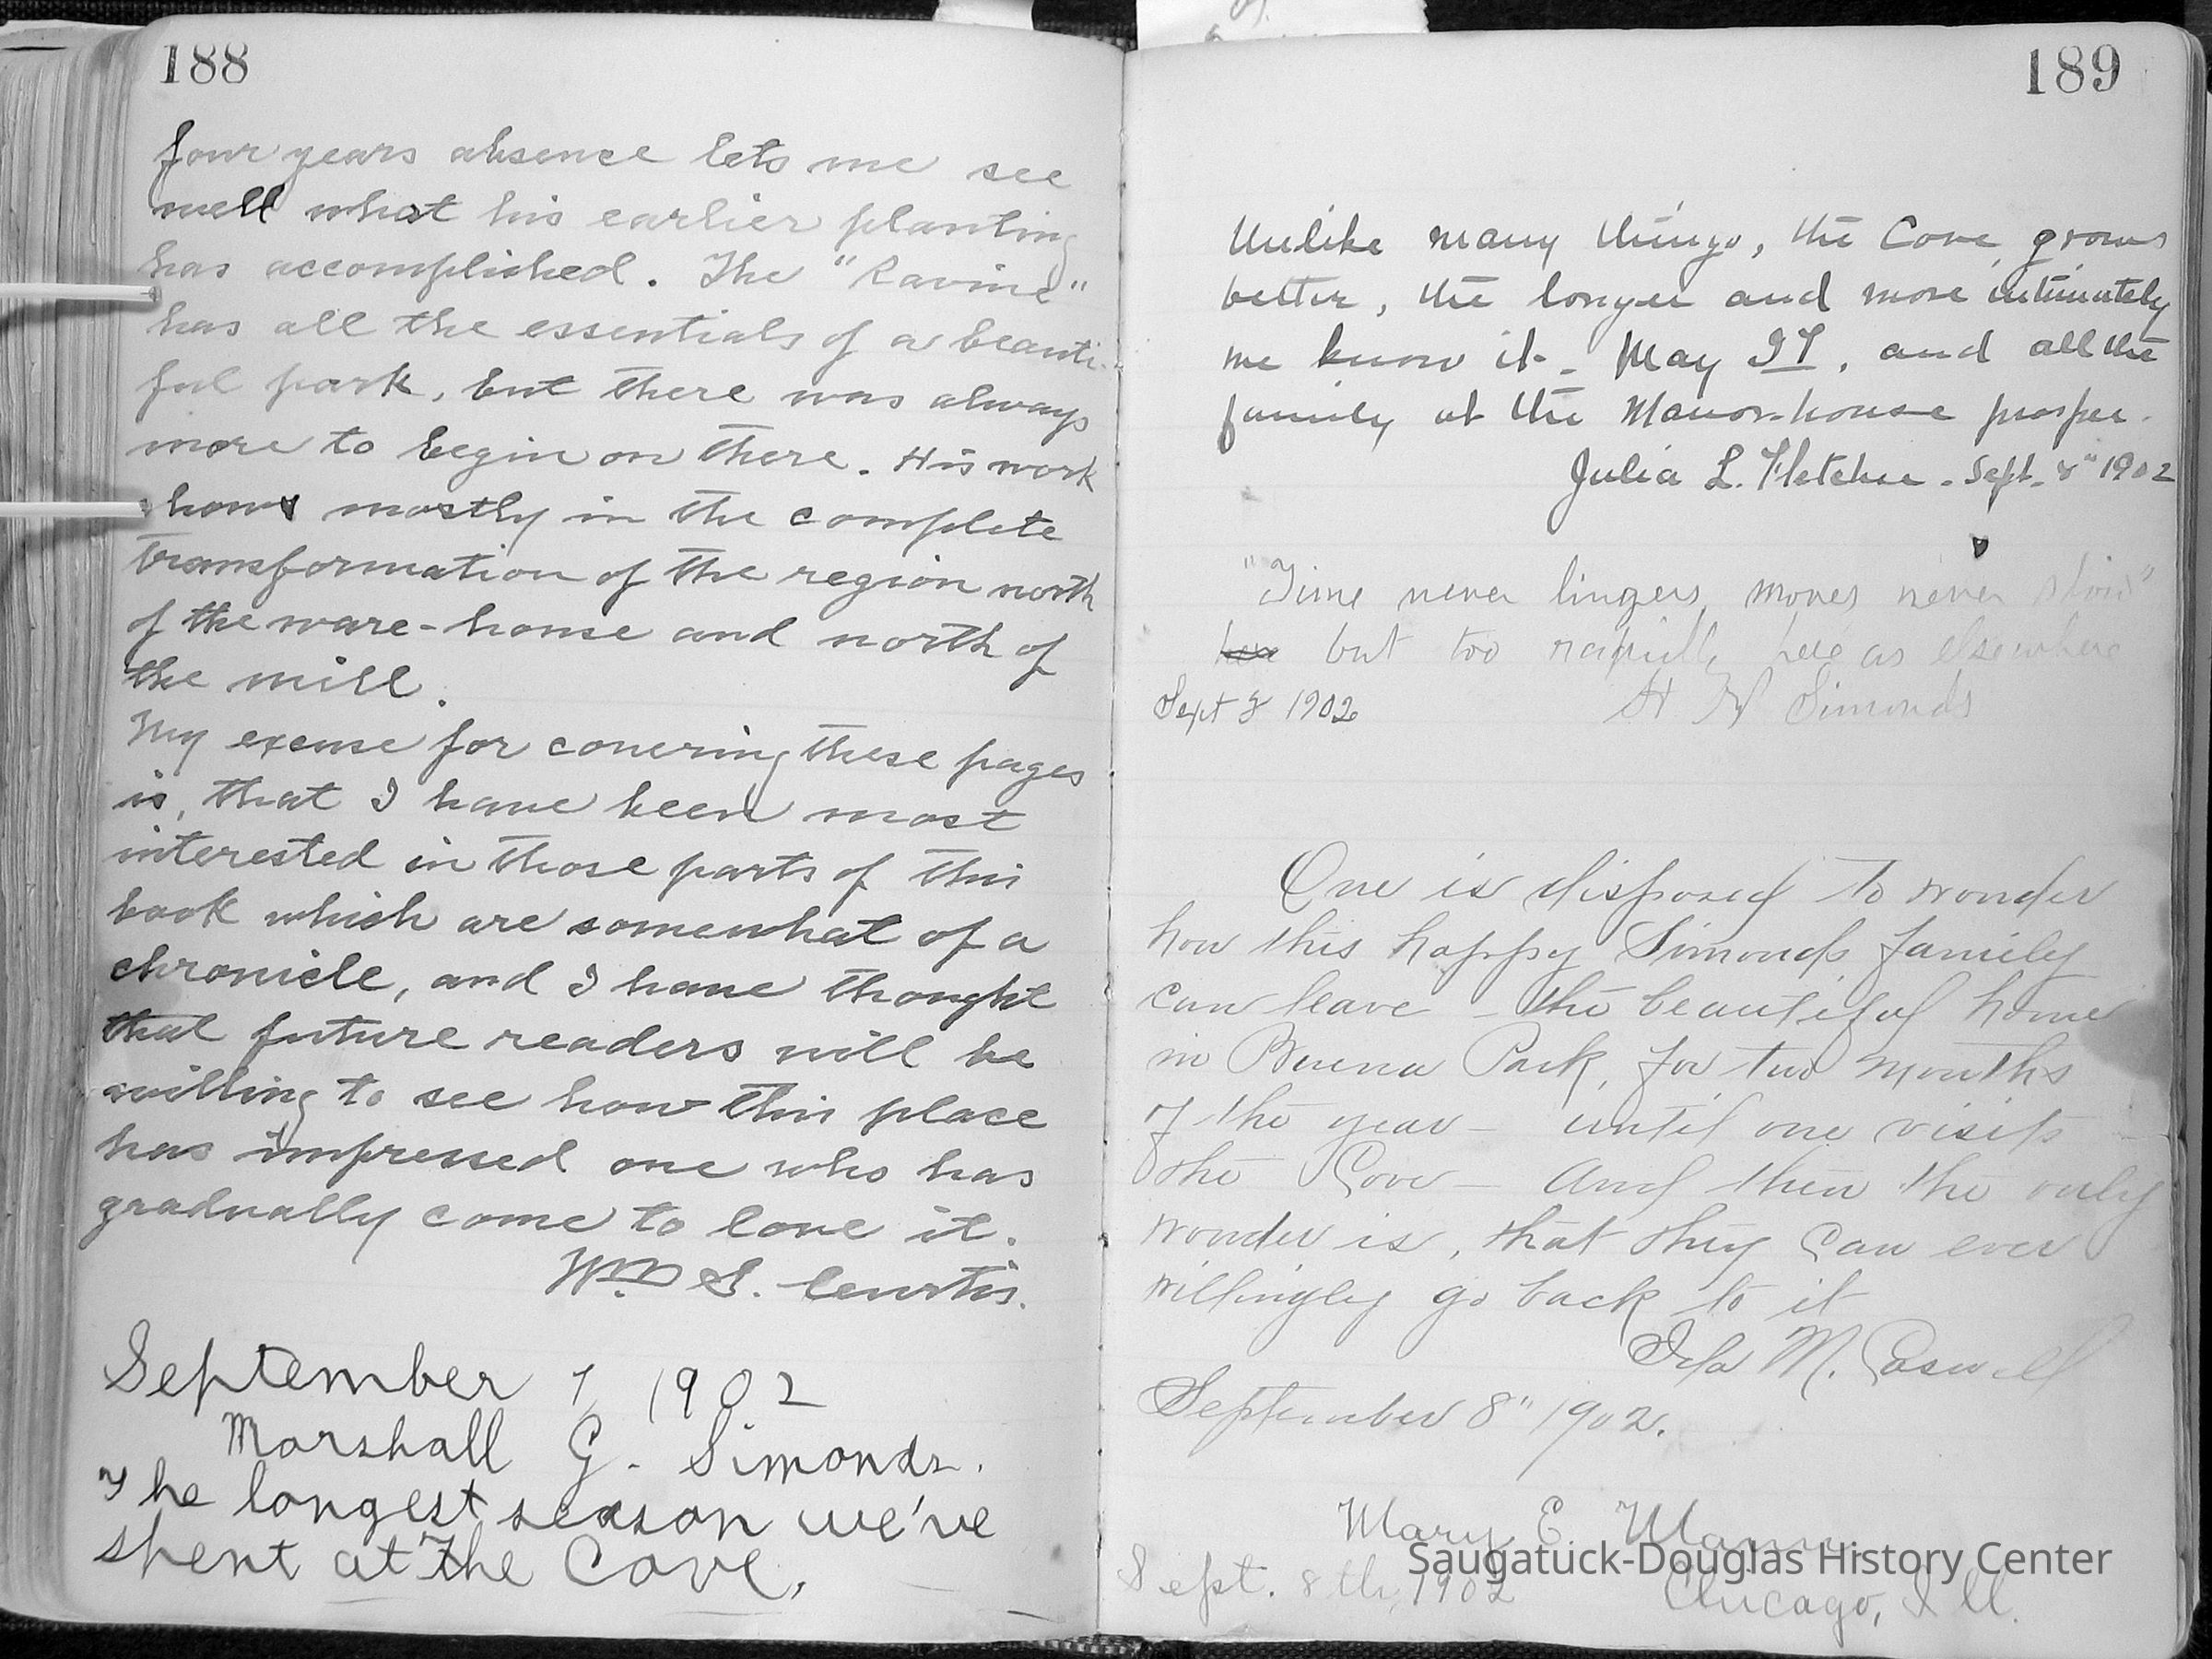 188
four years absence lets me see
well what his earlier planting
has accomplished. The "Ravine"
has all the essentials of a beauti-
ful park, but there was always
more to begin on there. His work
shows mostly in the complete
transformation of the region north
of the ware-house and north of
the mill.
My excuse for covering these pages
is, that I have been most
interested in those parts of this
book which are somewhat of a
chronicle, and I have thought
that future readers will be
willing to see how this place
has impressed one who has
gradually come to love it.
Wm S. Curtis.
September 1, 1902
Marshall G. Simonds.
The longest season we've
spent at The Cove.
189
Unlike many things, the Cove, grows
better, the longer and more intimately
we know it - May IT, and all the
family at the Manor-house prosper.
Julia L. Fletcher - Sept. 8" 1902
"Time never lingers, moves never slow"
here but too rapidly here as elsewhere
Sept 8 1902 Simonds
One is disposed to wonder
how this happy Simonds family
can leave - the beautiful home
in Buena Park, for two months
of the year - until one visits
the Cove - And then the only
wonder is, that they can ever
willingly go back to it
Ida M. Caswell
September 8" 1902.
Mary E. Mann
Sept. 8th, 1902 Chicago, Ill.
Saugatuck-Douglas History Center